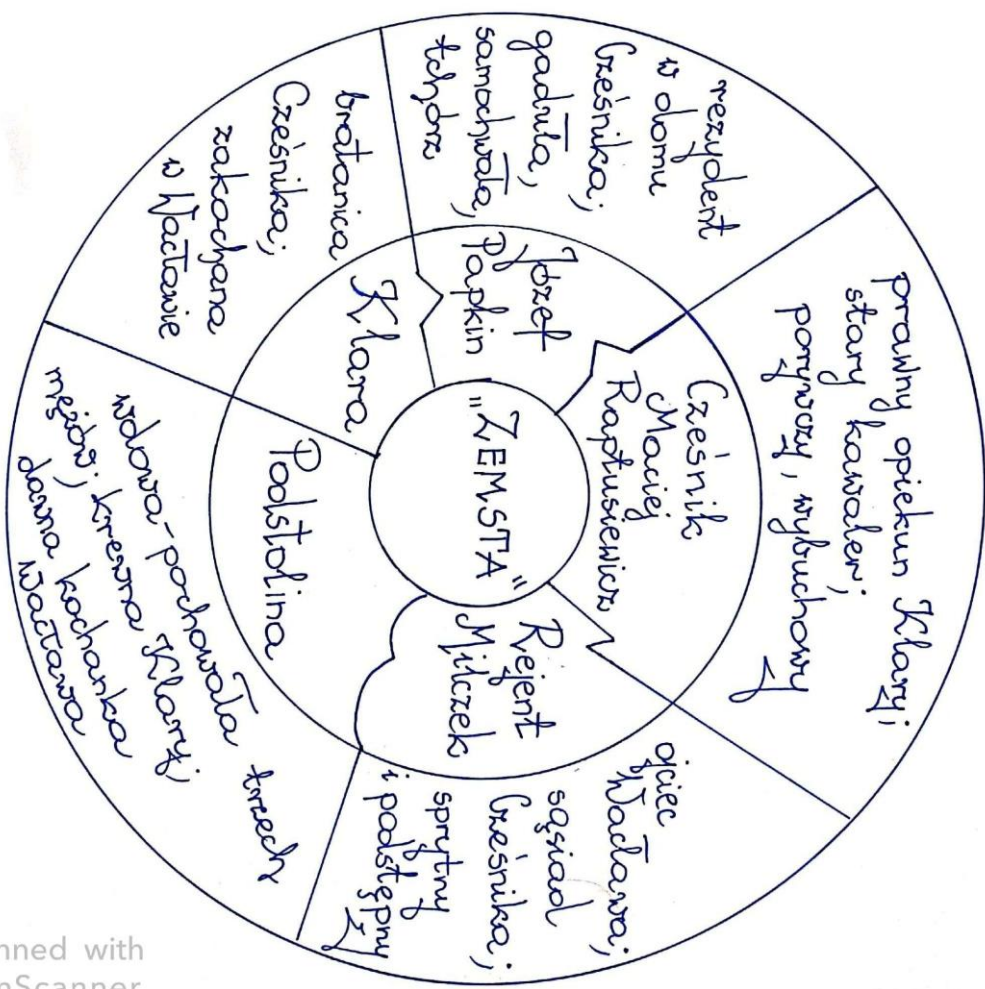 "ZEMSTA"
Cześnik
Maciej
Raptusiewicz
prawny opiekun Klary;
stary kawaler;
porywczy, wybuchowy
Rejent
Milczek
ojciec
Wacława;
sąsiad
Cześnika;
sprytny
i podstępny
Podstolina
wdowa-pochowała trzech
mężów; krewna Klary;
dawna kochanka
Wacława
Klara
bratanica
Cześnika;
zakochana
w Wacławie
Józef
Papkin
rezydent
w domu
Cześnika;
gaduła,
samochwała,
tchórz
nned with
nScanner